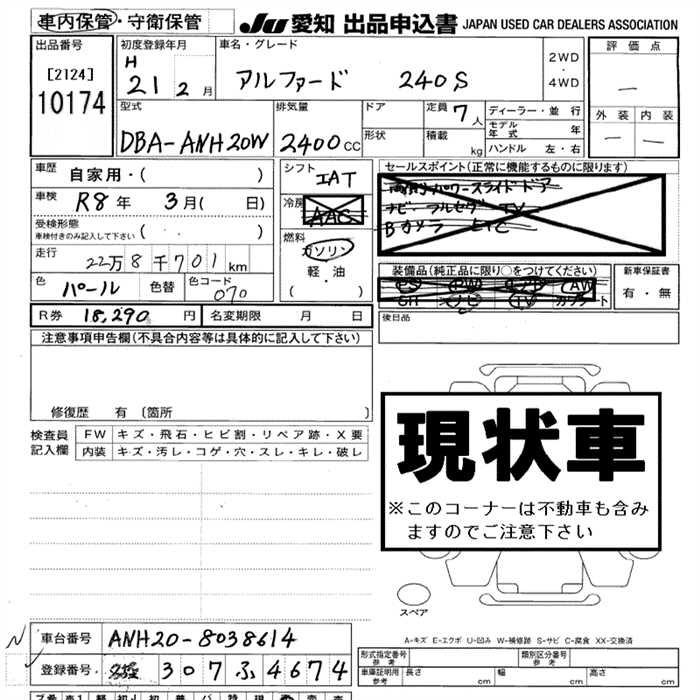 車内保管・守衛保管 JU 愛知 出品申込書 JAPAN USED CAR DEALERS ASSOCIATION
出品番号 初度登録年月 車名・グレード 評価点
[2124] H 2WD
10174 21 2月 アルファード 240S ・ —
4WD
型式 排気量 ドア 定員 7人 ディーラー・並行 外装 内装
モデル年式 年
DBA-ANH20W 2400cc 形状 積載 kg ハンドル 左・右 — —
車歴 自家用・( ) シフト IAT セールスポイント(正常に機能するものに限ります)
車検 R8年 3月( 日) 冷房 AAC 両側パワースライドドア
ナビ フルセグTV
受検形態 Bカメラ ETC
車検付きのみ記入して下さい ( ) 燃料
走行 22万8千701km ガソリン 装備品(純正品に限り○をつけてください) 新車保証書
軽・油 PS PW AW 有・無
色 パール 色替 色コード 070 ( ) SR ナビ TV カワシート
R券 18,290円 名変期限 月 日 後日品
注意事項申告欄(不具合内容等は具体的に記入して下さい)
修復歴 有 [箇所 ]
検査員 FW キズ・飛石・ヒビ割・リペア跡・X要
記入欄 内装 キズ・汚レ・コゲ・穴・スレ・キレ・破レ
現状車
※このコーナーは不動車も含み
ますのでご注意下さい
スペア
A-キズ E-エクボ U-凹み W-補修跡 S-サビ C-腐食 XX-交換済
車台番号 ANH20-8038614
型式指定番号 参考 類別区分番号 参考
登録番号 307 ふ 4674
車庫証明用 参考 長さ cm 幅 cm 高さ cm